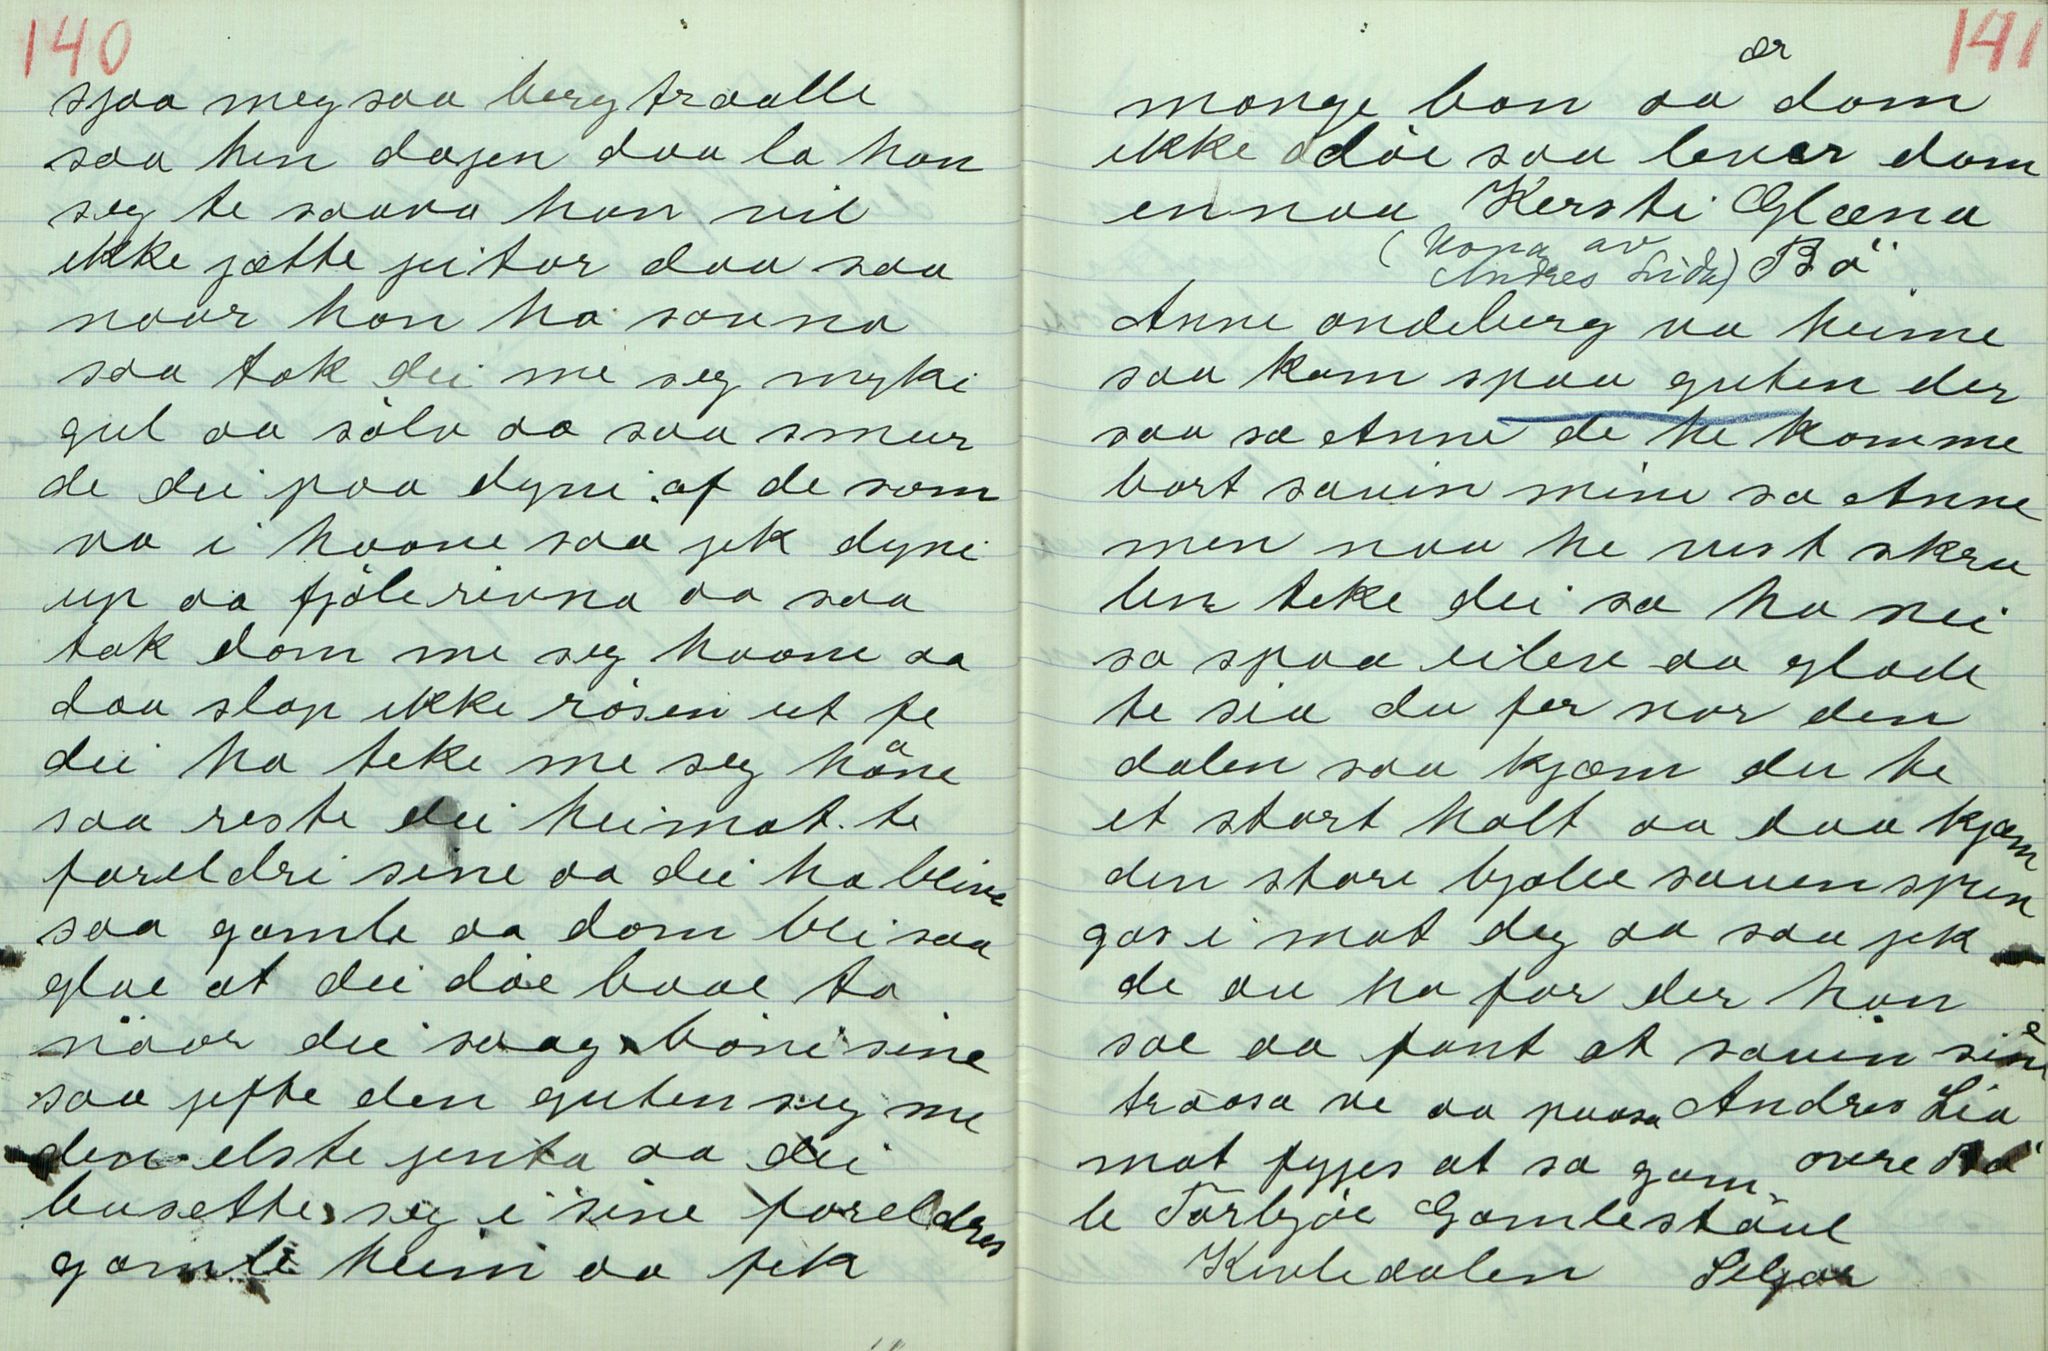 140
sjaa meg saa bergtraalle
saa hen dagen daa la han
seg te saava han vil
ikke jætte jeitar daa saa
naar han ha sovna
saa tok dei me seg myki
gul aa sölv aa saa smur
de dei paa dyni af de som
va i hoone saa jek dyni
up aa fjöle rivna aa saa
tok dom me seg hoone aa
daa slap ikke rösen ut fe
dei ha teke me seg håne
saa reste dei heimat te
foreldri sine aa dei ha blive
saa gamle aa dom blei saa
glae at dei döe baae to
naar dei saag böni sine
saa jifte den guten seg me
den elste jenta aa dei
busette seg i sine foreldres
gamle heim aa fek
141
mange bon aa ær dom
ikke döe saa lever dom
ennaa Kersti Glæna
(Kona av
Andres Lida) Bö
Anne andeberg va heime
saa kom spaa guten der
saa sa Anne de he komme
bort sauin mine sa Anne
men naa he vist skru
ben teke dei sa ha nei
sa spaa eilen aa glode
te sia du fer nor den
dalen saa kjæm du te
et stort holt aa daa kjæm
den store bjølle sauen sprin
gas i mot deg aa saa jek
de au ho for der han
sae aa fant at sauin sine
traasa ve aa paasa Andres Lia
mot fygjes at sa gam- øvre Bö
le Torbjöe Gamlestöul
Kivledalen Seljor